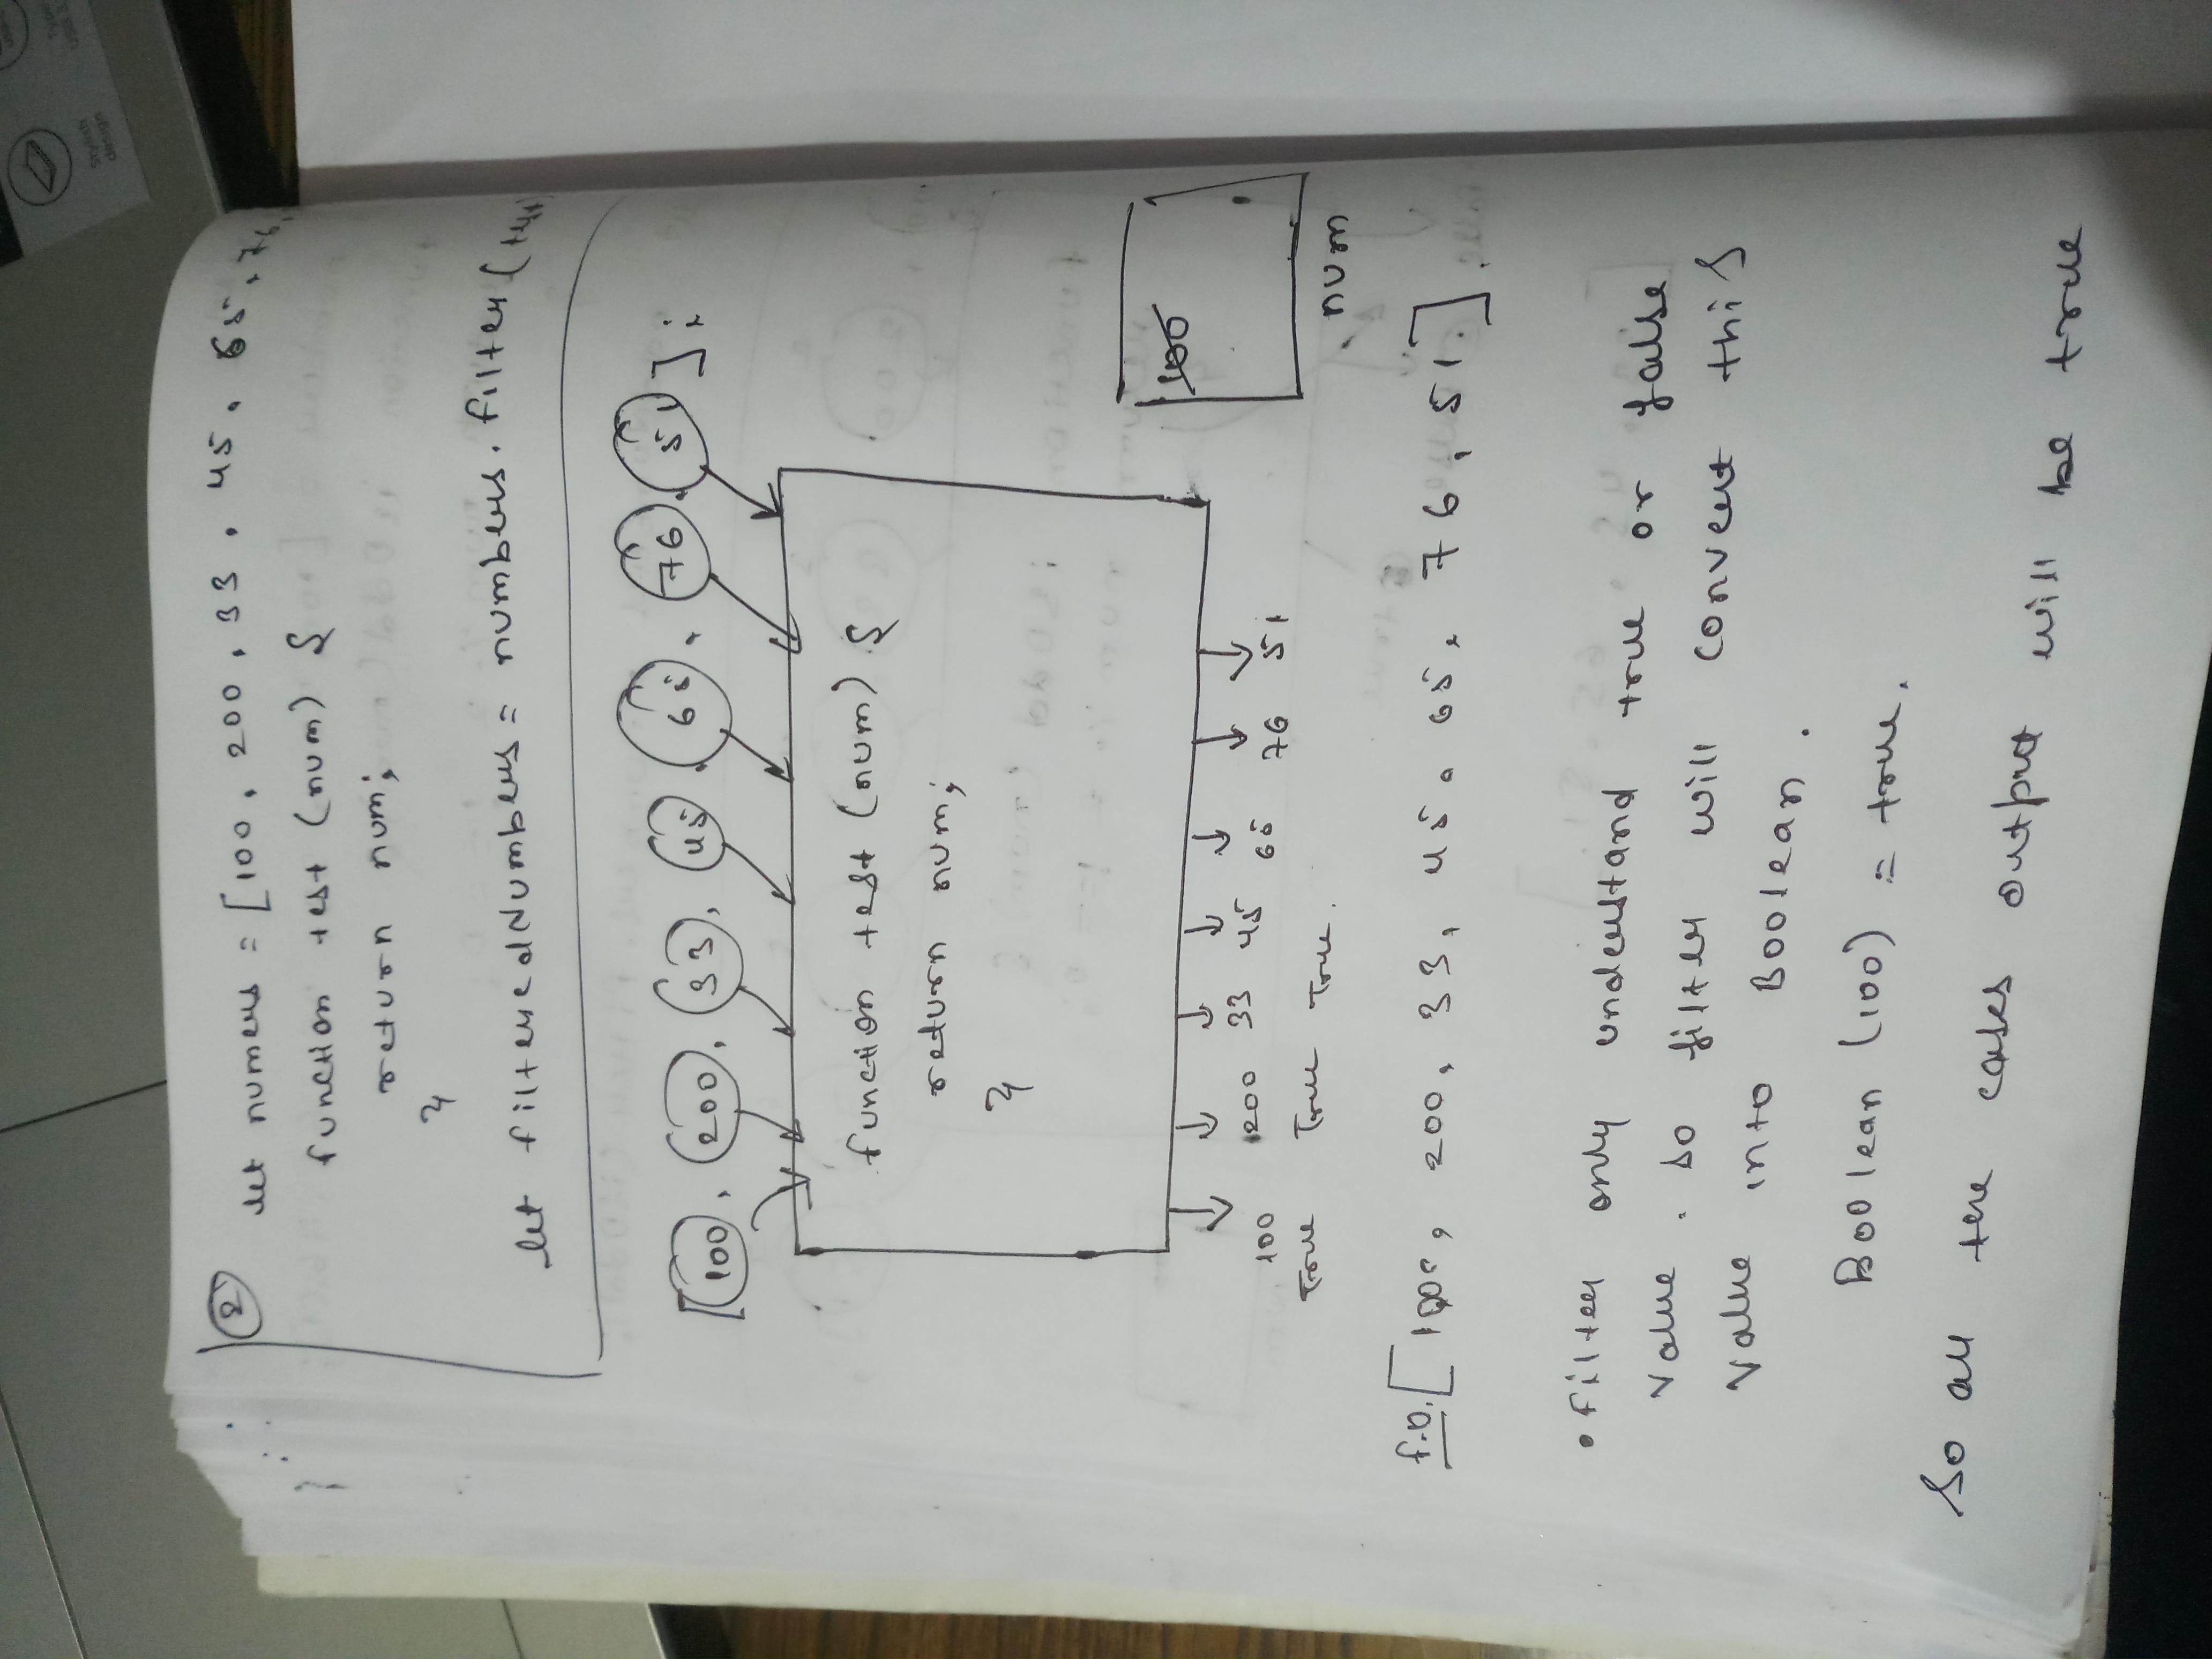 2
let numers = [100, 200, 33, 45, 65, 76,
function test (num) {
return num;
}
let filteredNumbers = numbers.filter(test
[100, 200, 33, 45, 65, 76, 51];
function test (num) {
return num;
}
100 200 33 45 65 76 51
True True True.
100
num
f.o. [100, 200, 33, 45, 65, 76, 51.]
• Filter only understand true or false
value. so filter will convert this
value into Boolean.
Boolean (100) = true.
So all the cases output will be true
Stylish
design
Type